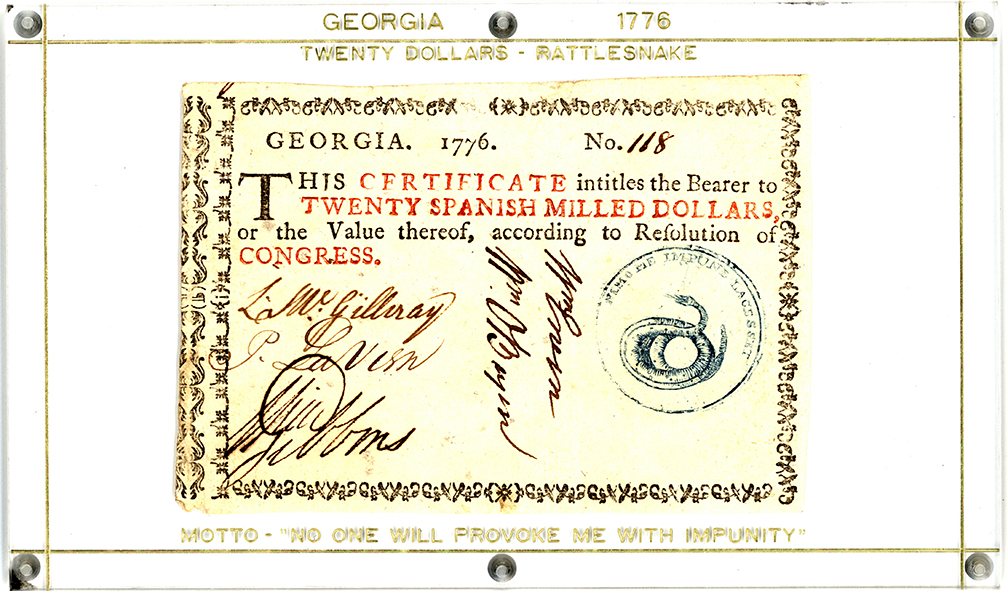 GEORGIA 1776
TWENTY DOLLARS - RATTLESNAKE
GEORGIA. 1776. No. 118
THIS CERTIFICATE intitles the Bearer to
TWENTY SPANISH MILLED DOLLARS,
or the Value thereof, according to Reſolution of
CONGRESS.
L. McGillivray
P. LaVien
Wm Gibbons
Wm
NEMO ME IMPUNE LACESSET
MOTTO - "NO ONE WILL PROVOKE ME WITH IMPUNITY"